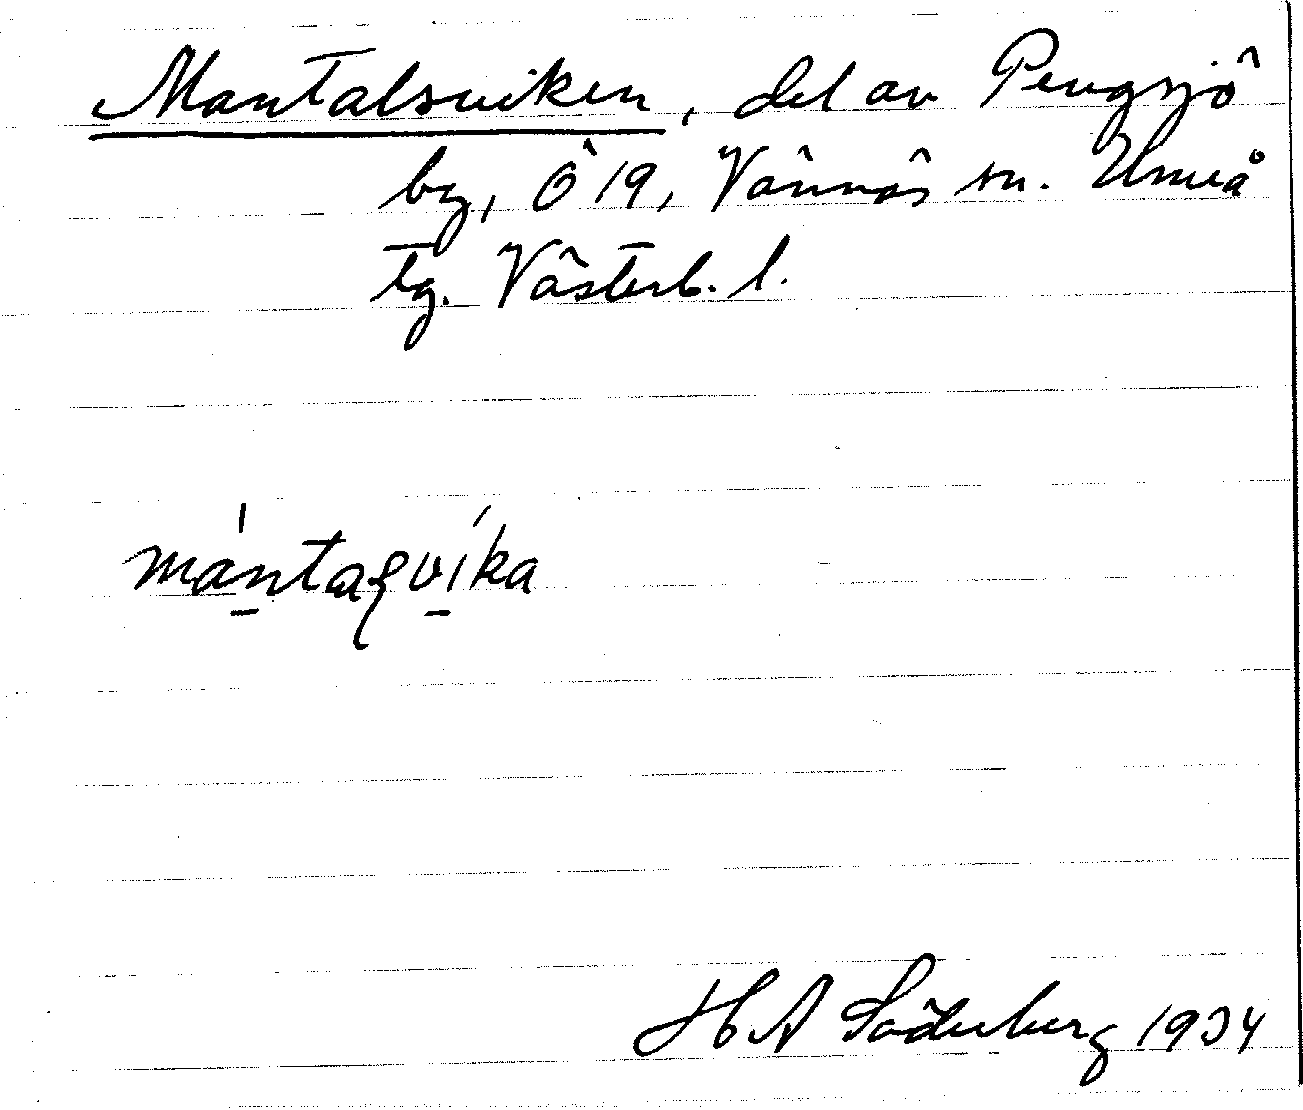 Mantalsviken, del av Pengsjö
by, Ö 19, Vännäs sn. Umeå
tg. Västerb. l.
H A Söderberg 1934